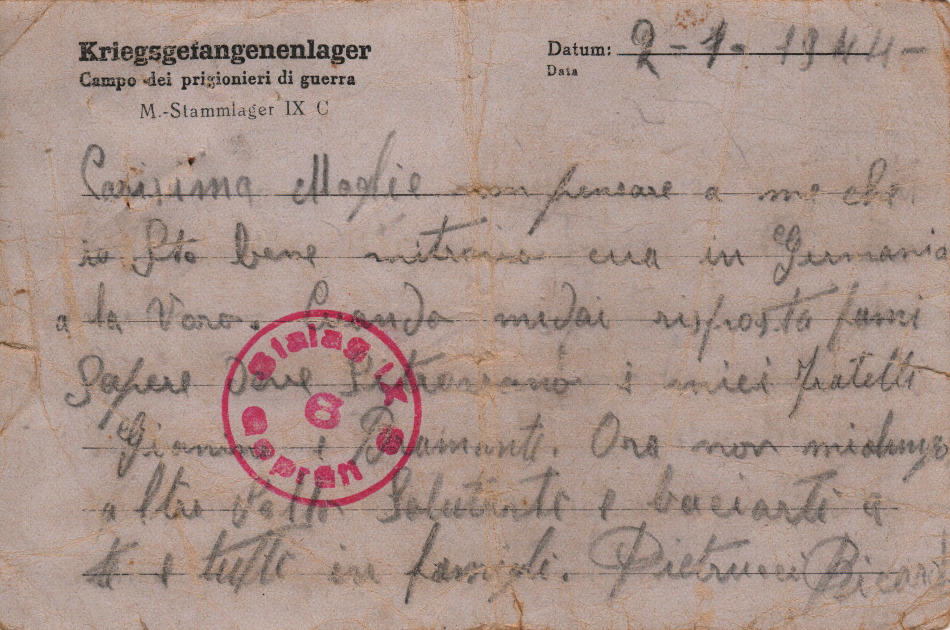 Kriegsgefangenenlager
Campo dei prigionieri di guerra
M.-Stammlager IX C
Datum: 2-1-1944-
Data
Carisima Moglie non pensare a me che
io Sto bene mitrovo cua in Germania
a la Voro. Cuando midai risposta fami
Sapere dove Sitrovano i miei fratelli
Gianino e Bramante. Ora non midungo
altro Salutarte e baciarti a
te e tutti in famigli. Pietrucci Bicard
Stalag IX C
8
Geprüft